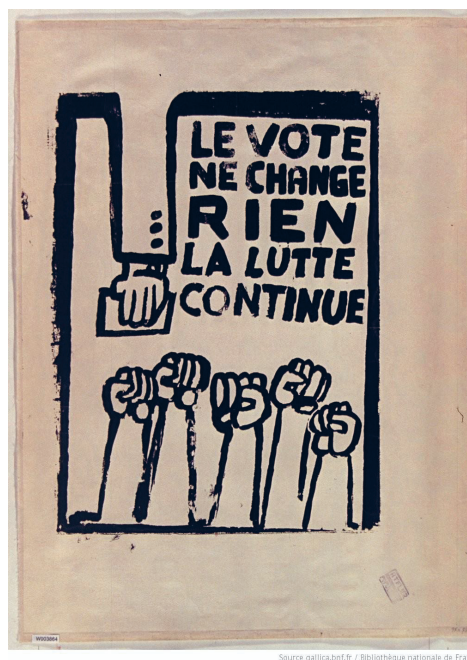 LE VOTE
NE CHANGE
RIEN
LA LUTTE
CONTINUE
W003864
Source gallica.bnf.fr / Bibliothèque nationale de Fra